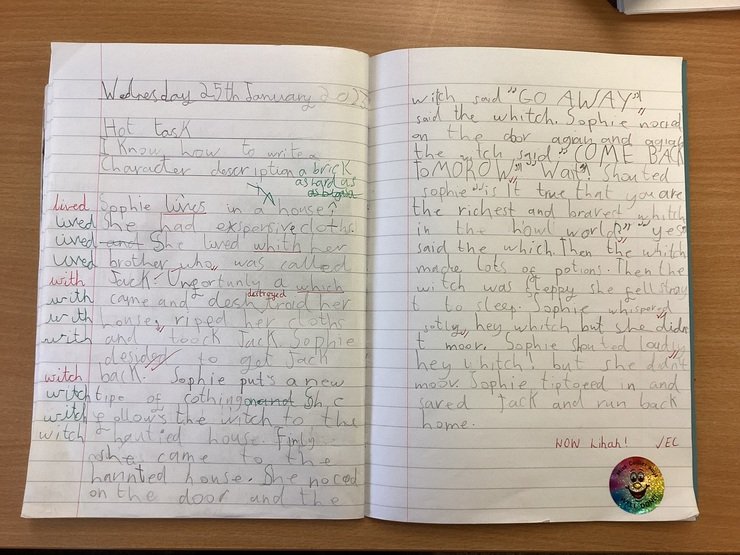 Wednesday 25th January 2023
Hot task
I know how to write a
Character description a brick
as hard as
as big as a
lived Sophie lives in a house.
lived She had exspensive cloths.
lived and She lived whith her
lived brother who was called
with Jack. Unfortunly a which
destroyed
with came and destroid her
with house, riped her cloths
with and toock Jack. Sophie
desided to get Jack
witch back. Sophie put's a new
witch tipe of cothing on and She
witch follow's the witch to the
witch hantied house. Finly
she came to the
haunted house. She noced
on the door and the
witch said "GO AWAY"
said the whitch. Sophie noced
on the door again and again
the witch said "COME BACK
toMOROW" "Wait" Shouted
sophie "is it true that you are
the richest and bravest whitch
in the howl world?" "yes"
said the which. Then the whitch
made lots of potions. Then the
witch was sleppy she fell stray
t to sleep. Sophie whispered
softly "hey, whitch but she didn
t moov. Sophie shouted loudly
hey whitch! but she didn't
moov. Sophie tiptoed in and
saved Jack and run back
home.
WOW Lihah! EC